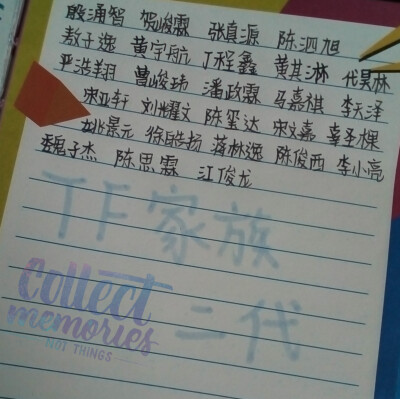 殷涌智 贺峻霖 张真源 陈泗旭
敖子逸 黄宇航 丁程鑫 黄其淋 代昊林
严浩翔 曹峻玮 潘政霖 马嘉祺 李天泽
宋亚轩 刘耀文 陈玺达 宋文嘉 辜圣棵
姚景元 徐皓扬 蒋林逸 陈俊西 李小亮
魏子杰 陈思霖 江俊龙
TF家族
二代
Collect
memories
NOT THINGS